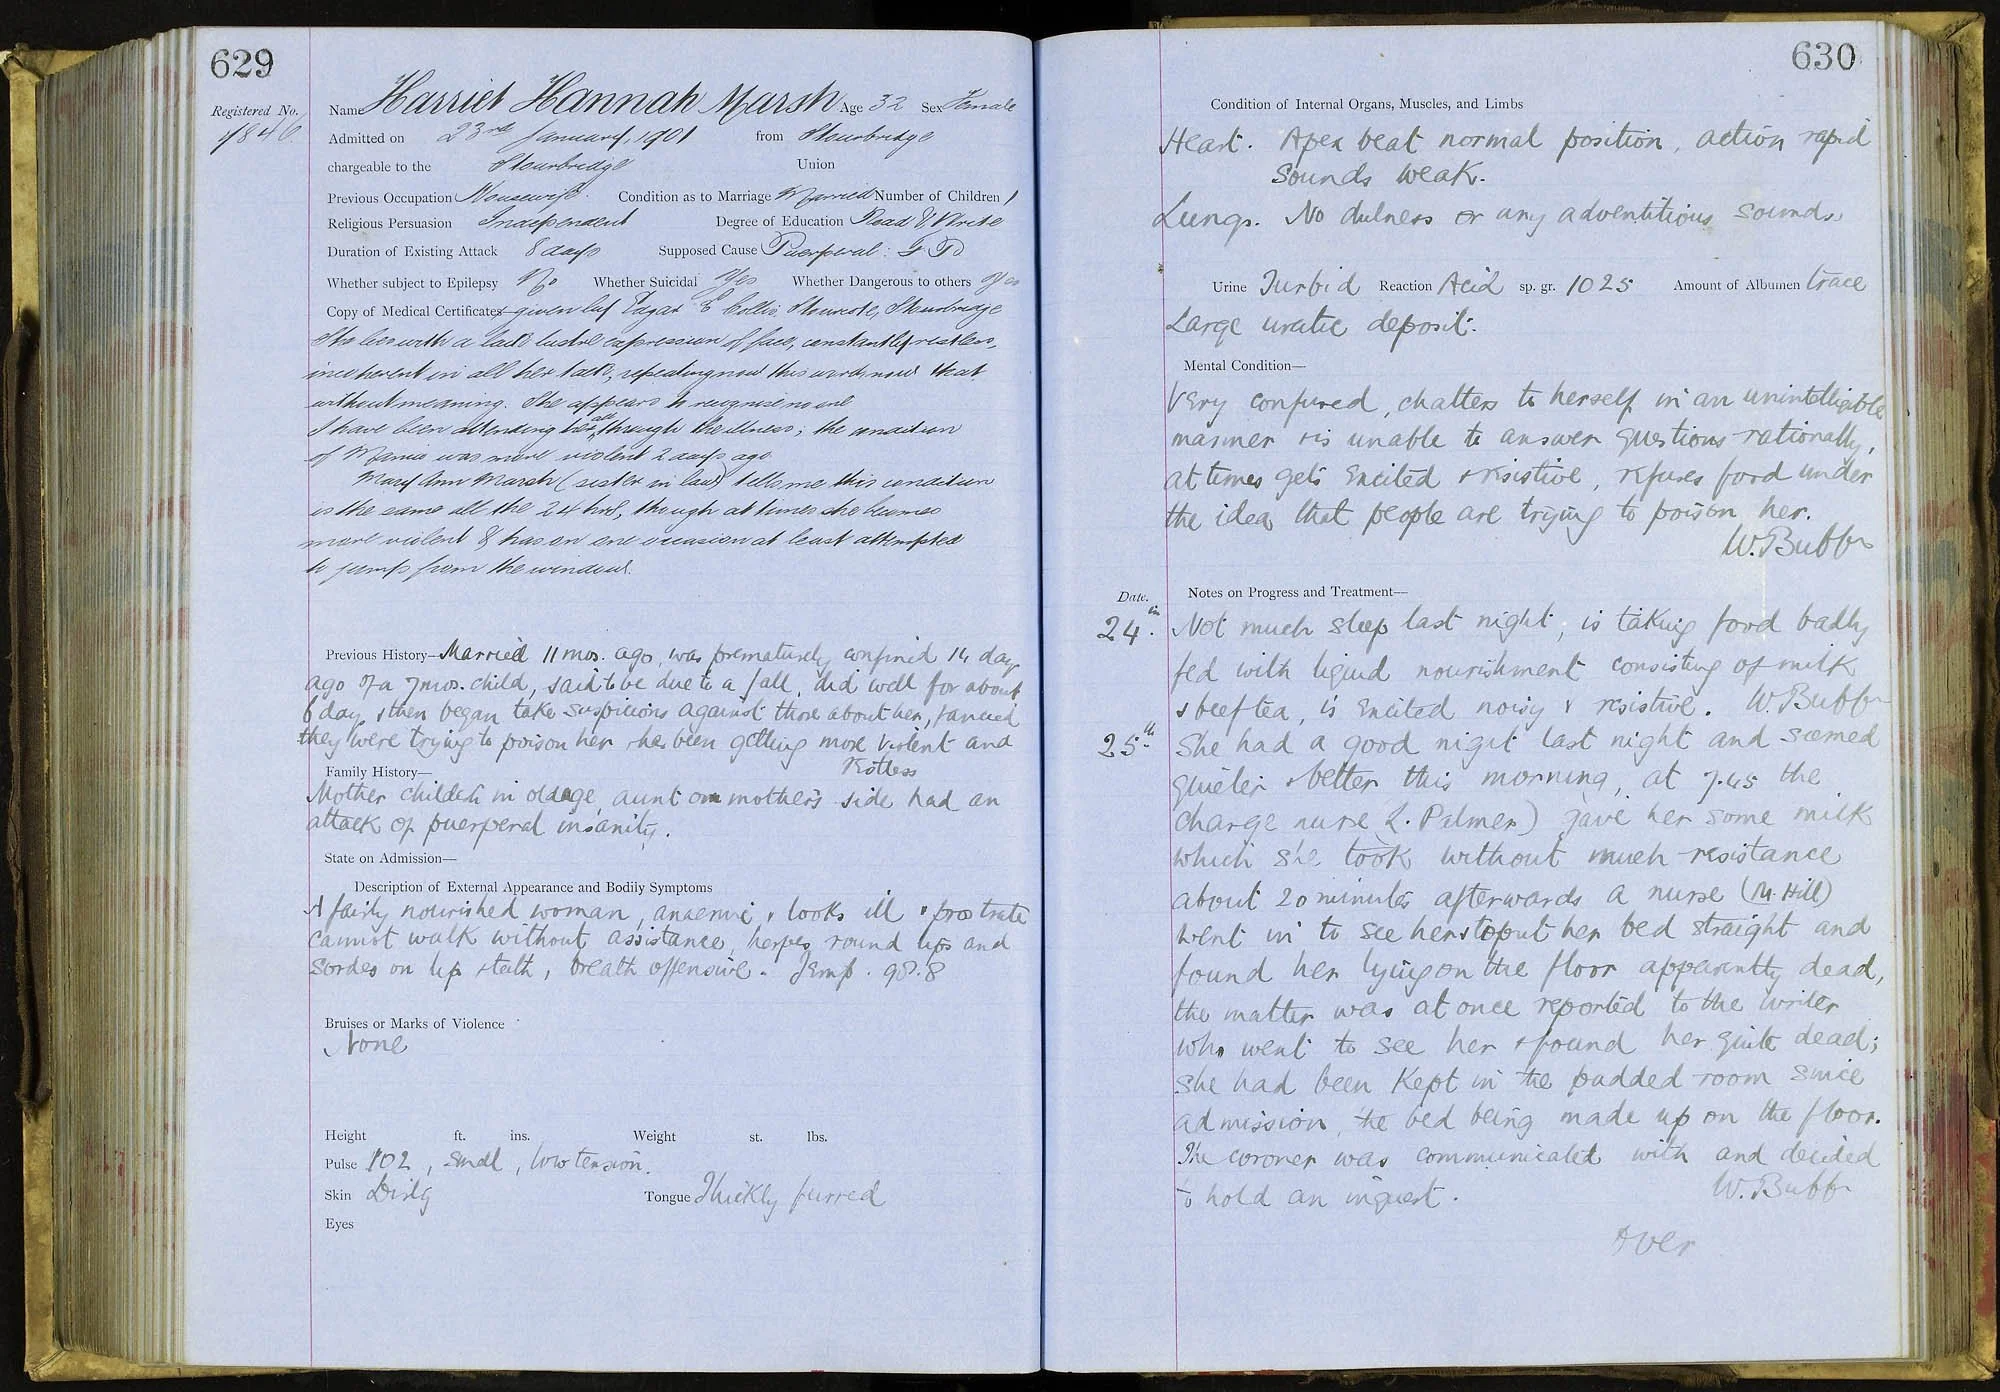 629
Registered No.
Name Harriet Hannah Marsh Age 32 Sex Female
Admitted on 23rd January, 1901 from Stourbridge
chargeable to the Stourbridge Union
Previous Occupation Housewife Condition as to Marriage Married Number of Children 1
Religious Persuasion Independent Degree of Education Read & Write
Duration of Existing Attack 8 days Supposed Cause Puerperal:
Whether subject to Epilepsy No Whether Suicidal Yes Whether Dangerous to others Yes
Copy of Medical Certificates— given by Edgar E Collis, Stourbridge
She lies with a lack lustre expression of face, constantly restless,
incoherent in all her talk, repeating now this word, now that
without meaning. She appears to recognise no one
I have been attending her all through the illness; the condition
of Mania was more violent 2 days ago.
Mary Ann Marsh (sister in law) tells me this condition
is the same all the 24 hrs, though at times she becomes
more violent & has on one occasion at least attempted
to jump from the window.
Previous History— Married 11 mos. ago, was prematurely confined 14 days
ago of a 7 mos. child, said to be due to a fall, did well for about
6 days, then began take suspicions against those about her, fancied
they were trying to poison her + has been getting more violent and
restless
Family History—
Mother childish in old age, aunt on mother's side had an
attack of puerperal insanity.
State on Admission—
Description of External Appearance and Bodily Symptoms
A fairly nourished woman, anaemic, + looks ill + prostrate
cannot walk without assistance, herpes round lips and
sordes on lips + teeth, breath offensive. Temp. 98.8
Bruises or Marks of Violence
None
Height ft. ins. Weight st. lbs.
Pulse 102, small, low tension.
Skin Dirty Tongue Thickly furred
Eyes
630
Condition of Internal Organs, Muscles, and Limbs
Heart. Apex beat normal position, action rapid
sounds weak.
Lungs. No dulness or any adventitious sounds
Urine Turbid Reaction Acid sp. gr. 1025 Amount of Albumen trace
Large uratic deposit.
Mental Condition—
Very confused, chatters to herself in an unintelligible
manner + is unable to answer questions rationally,
at times gets excited + resistive, refuses food under
the idea that people are trying to poison her.
W. Buffr
Date. Notes on Progress and Treatment—
24th. Not much sleep last night, is taking food badly
fed with liquid nourishment consisting of milk
+ beef tea, is excited noisy & resistive. W. Buffr
25th. She had a good night last night and seemed
quieter + better this morning, at 7.45 the
charge nurse L. Palmer) gave her some milk
which she took without much resistance
about 20 minutes afterwards a nurse (M. Hill)
went in to see her + to put her bed straight and
found her lying on the floor apparently dead,
the matter was at once reported to the writer
who went to see her + found her quite dead;
she had been kept in the padded room since
admission, the bed being made up on the floor.
The coroner was communicated with and decided
to hold an inquest. W. Buffr
Over